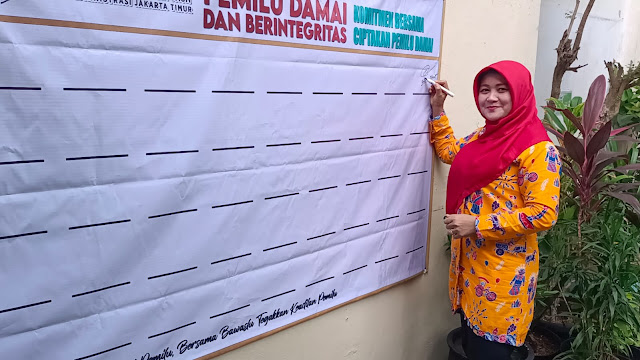 ADMINISTRASI JAKARTA TIMUR
PEMILU DAMAI
DAN BERINTEGRITAS
KOMITMEN BERSAMA
CIPTAKAN PEMILU DAMAI
Pemilu, Bersama Bawaslu Tegakkan Keadilan Pemilu